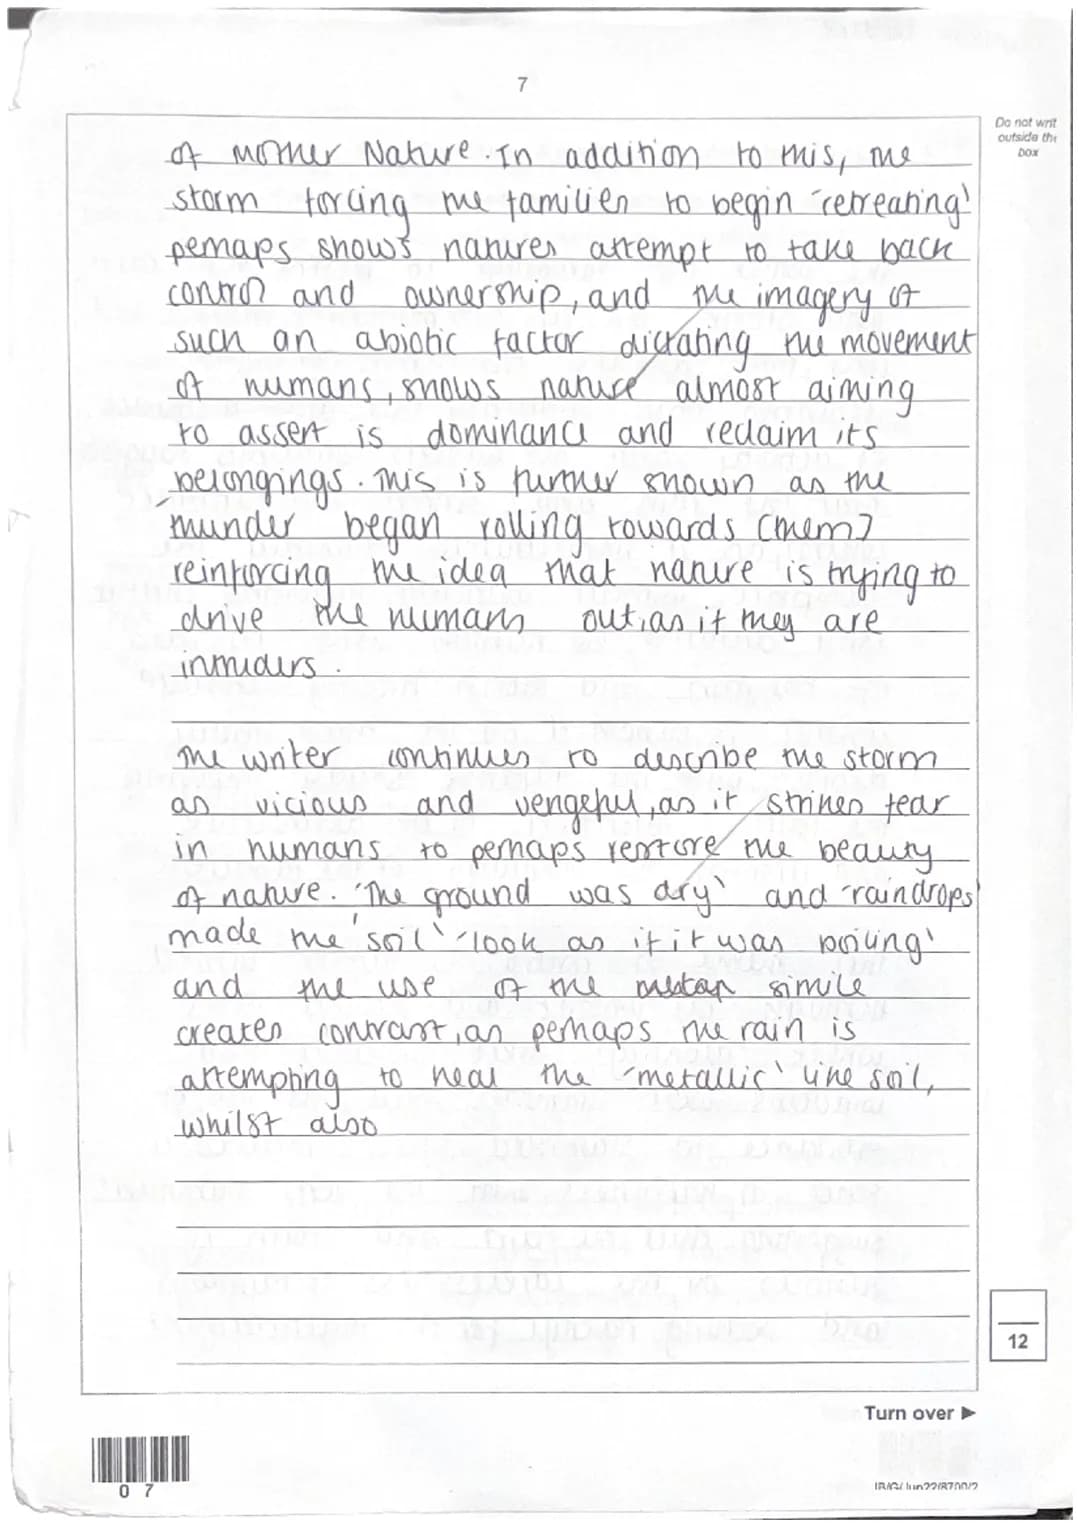 7
Do not writ
outside the
box
of Mother Nature. In addition to this, the
storm forcing the families to begin 'retreating'
perhaps shows natures attempt to take back
control and ownership, and the imagery of
such an abiotic factor dictating the movement
of humans, shows nature almost aiming
to assert is dominance and reclaim its
belongings. This is further shown as the
'thunder began rolling towards [them]
reinforcing the idea that nature is trying to
drive the humans out, as if they are
intruders.
The writer continues to describe the storm
as vicious and vengeful, as it strikes fear
in humans to perhaps restore the beauty
of nature. 'The ground was dry' and 'raindrops'
made the 'soil' 'look as if it was boiling'
and the use of the simile
creates contrast, as perhaps the rain is
attempting to heal the 'metallic' like soil,
whilst also
12
Turn over ►
0 7
IB/G/Jun22/8700/2